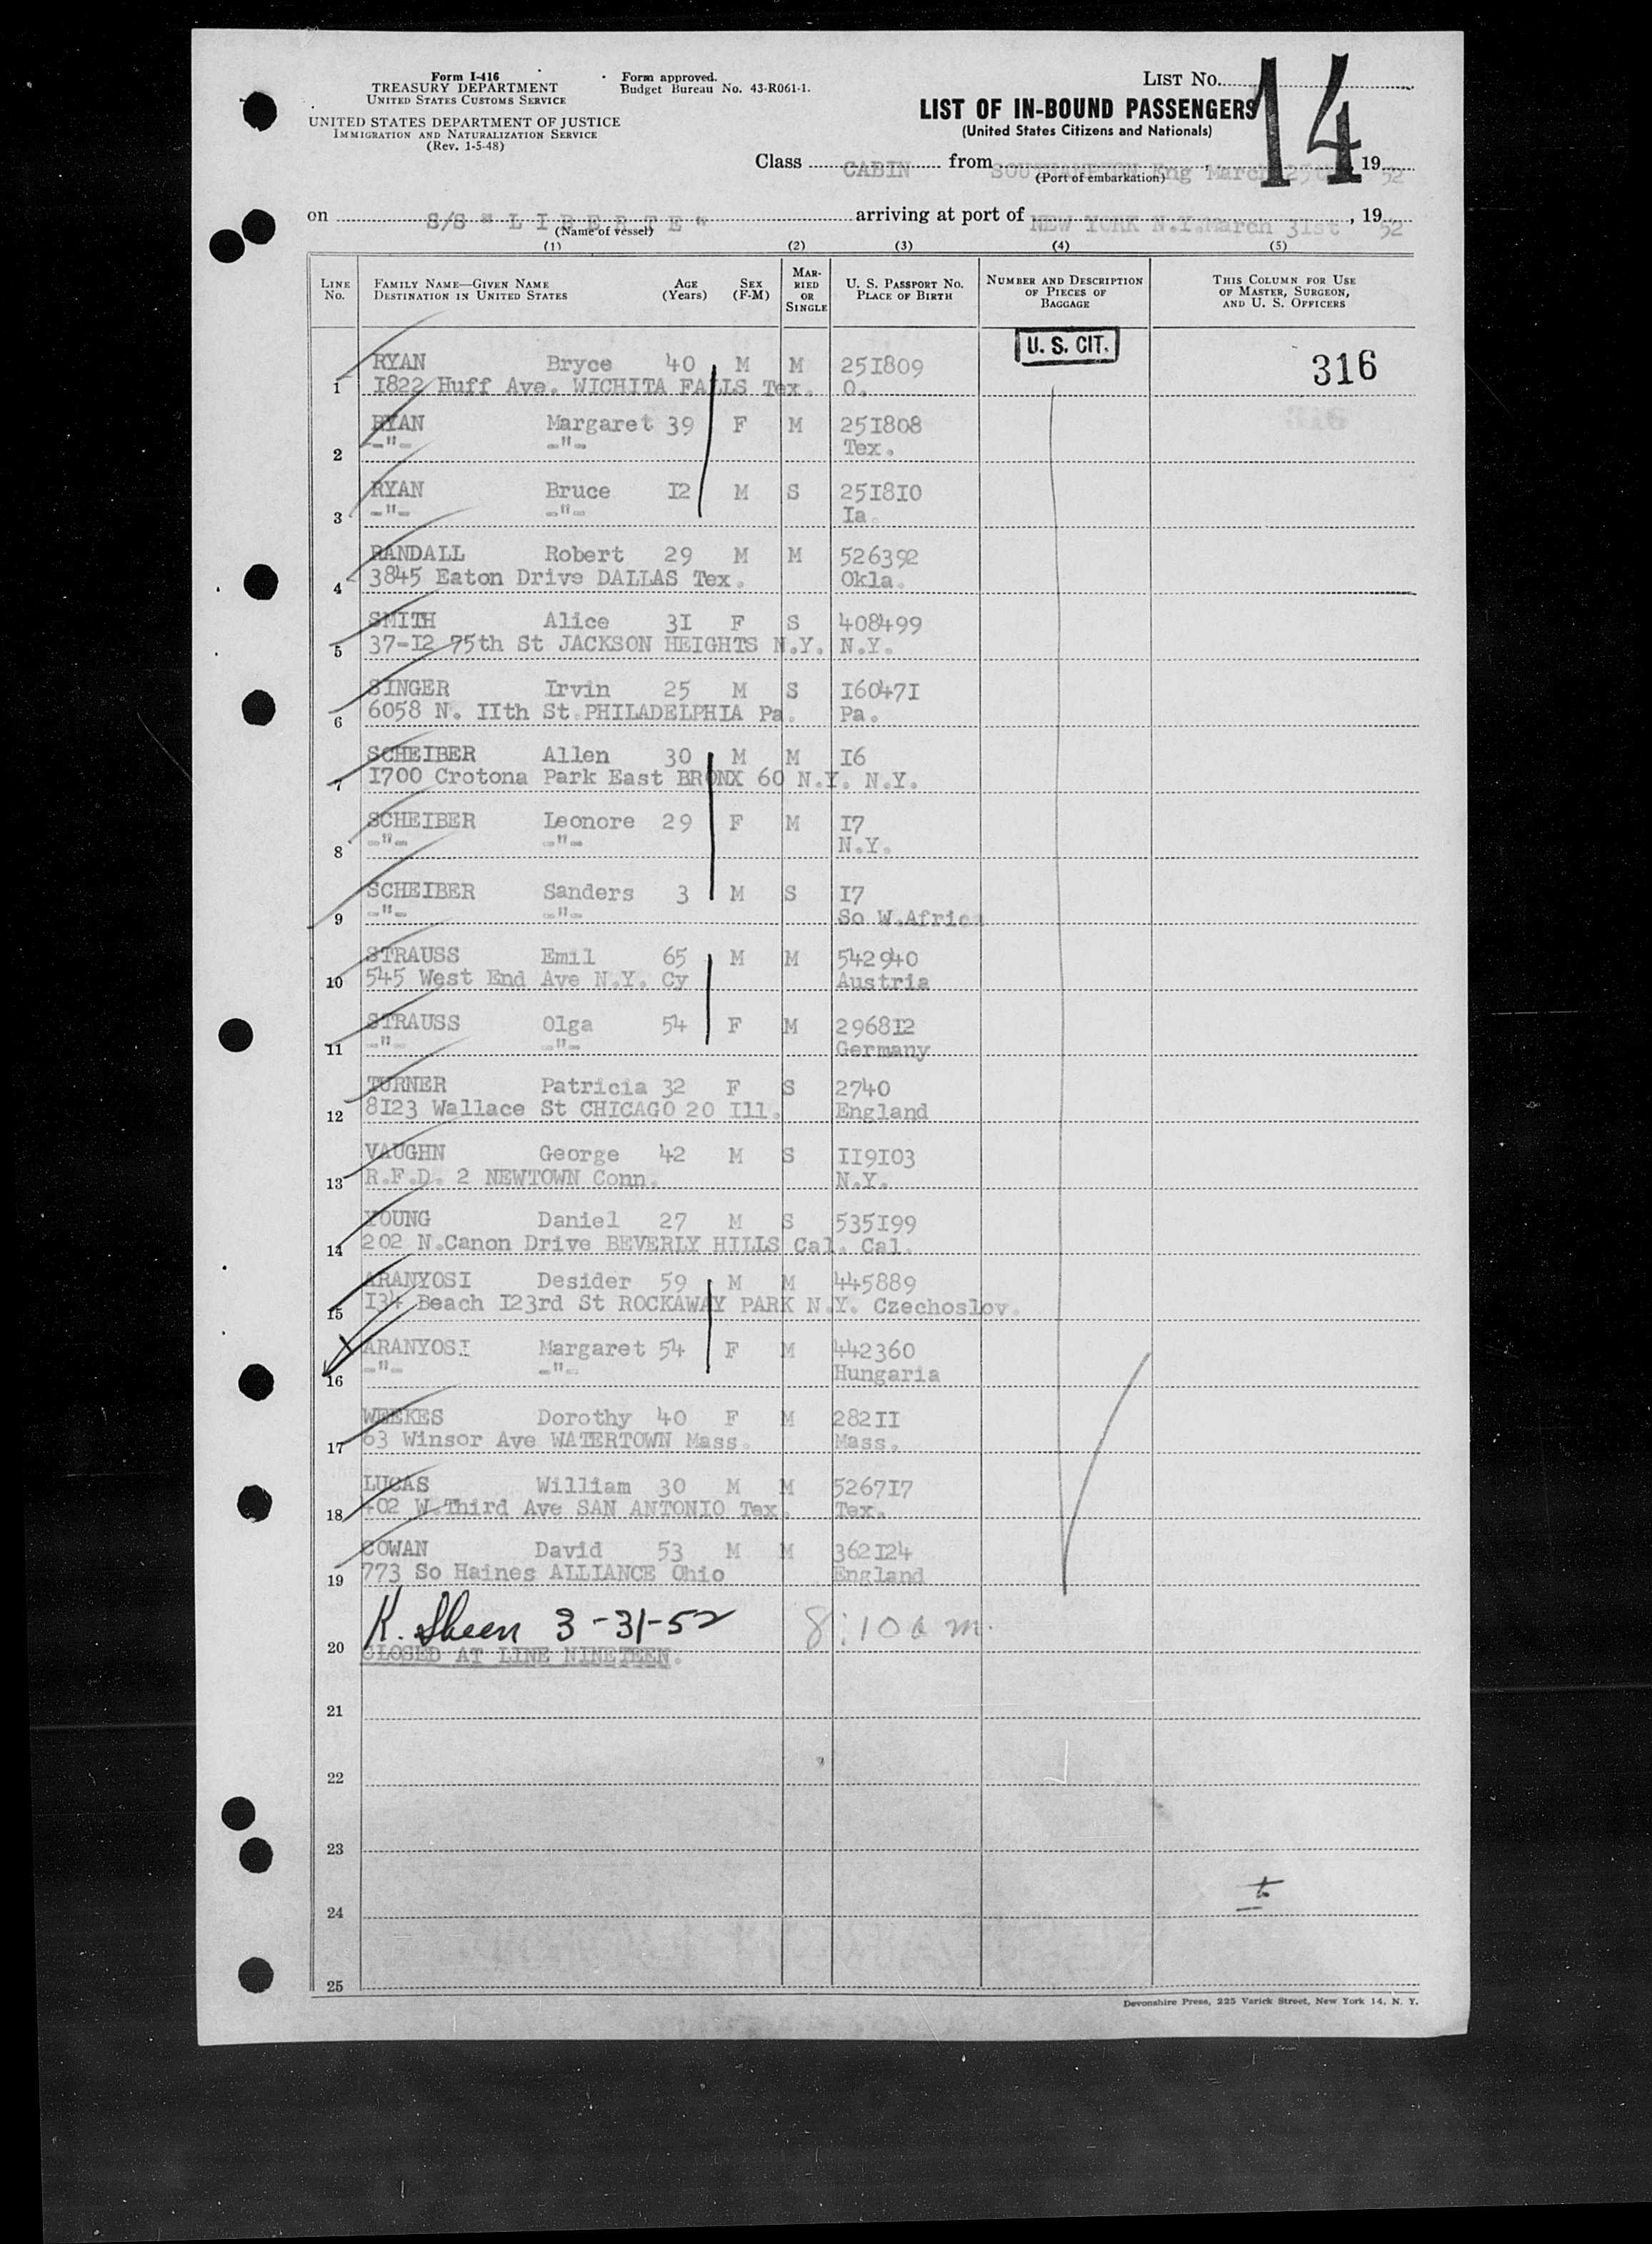 Form I-416
TREASURY DEPARTMENT
UNITED STATES CUSTOMS SERVICE
UNITED STATES DEPARTMENT OF JUSTICE
IMMIGRATION AND NATURALIZATION SERVICE
(Rev. 1-5-48)
Form approved.
Budget Bureau No. 43-R061-1.
LIST NO. 14
LIST OF IN-BOUND PASSENGERS
(United States Citizens and Nationals)
Class CABIN from SOUTHAMPTON Eng March 25th, 1952
(Port of embarkation)
on S/S "LIBERTE" arriving at port of NEW YORK N.Y. March 31st, 1952
(Name of vessel)
(1) (2) (3) (4) (5)
LINE No. FAMILY NAME—GIVEN NAME DESTINATION IN UNITED STATES AGE (Years) SEX (F-M) MARRIED OR SINGLE U. S. PASSPORT No. PLACE OF BIRTH NUMBER AND DESCRIPTION OF PIECES OF BAGGAGE THIS COLUMN FOR USE OF MASTER, SURGEON, AND U. S. OFFICERS
U. S. CIT.
RYAN Bryce 40 M M 251809 316
1 1822 Huff Ave. WICHITA FALLS Tex. O.
RYAN Margaret 39 F M 251808
2 -"- -"- Tex.
RYAN Bruce 12 M S 251810
3 -"- -"- Ia.
RANDALL Robert 29 M M 526392
4 3845 Eaton Drive DALLAS Tex. Okla.
SMITH Alice 31 F S 408499
5 37-12 75th St JACKSON HEIGHTS N.Y. N.Y.
SINGER Irvin 25 M S 160471
6 6058 N. 11th St.PHILADELPHIA Pa. Pa.
SCHEIBER Allen 30 M M 16
7 1700 Crotona Park East BRONX 60 N.Y. N.Y.
SCHEIBER Leonore 29 F M 17
8 -"- -"- N.Y.
SCHEIBER Sanders 3 M S 17
9 -"- -"- So W.Africa
STRAUSS Emil 65 M M 542940
10 545 West End Ave N.Y. Cy Austria
STRAUSS Olga 54 F M 296812
11 -"- -"- Germany
TURNER Patricia 32 F S 2740
12 8123 Wallace St CHICAGO 20 Ill. England
VAUGHN George 42 M S 119103
13 R.F.D. 2 NEWTOWN Conn. N.Y.
YOUNG Daniel 27 M S 535199
14 202 N.Canon Drive BEVERLY HILLS Cal. Cal.
ARANYOSI Desider 59 M M 445889
15 134 Beach 123rd St ROCKAWAY PARK N.Y. Czechoslov.
ARANYOSI Margaret 54 F M 442360
16 -"- -"- Hungaria
WEEKES Dorothy 40 F M 28211
17 63 Winsor Ave WATERTOWN Mass. Mass.
LUCAS William 30 M M 526717
18 402 W.Third Ave SAN ANTONIO Tex. Tex.
COWAN David 53 M M 362124
19 773 So Haines ALLIANCE Ohio England
K. Sheen 3-31-52 8:10 a m.
20 CLOSED AT LINE NINETEEN.
21
22
23
24
25
Devonshire Press, 225 Varick Street, New York 14, N. Y.